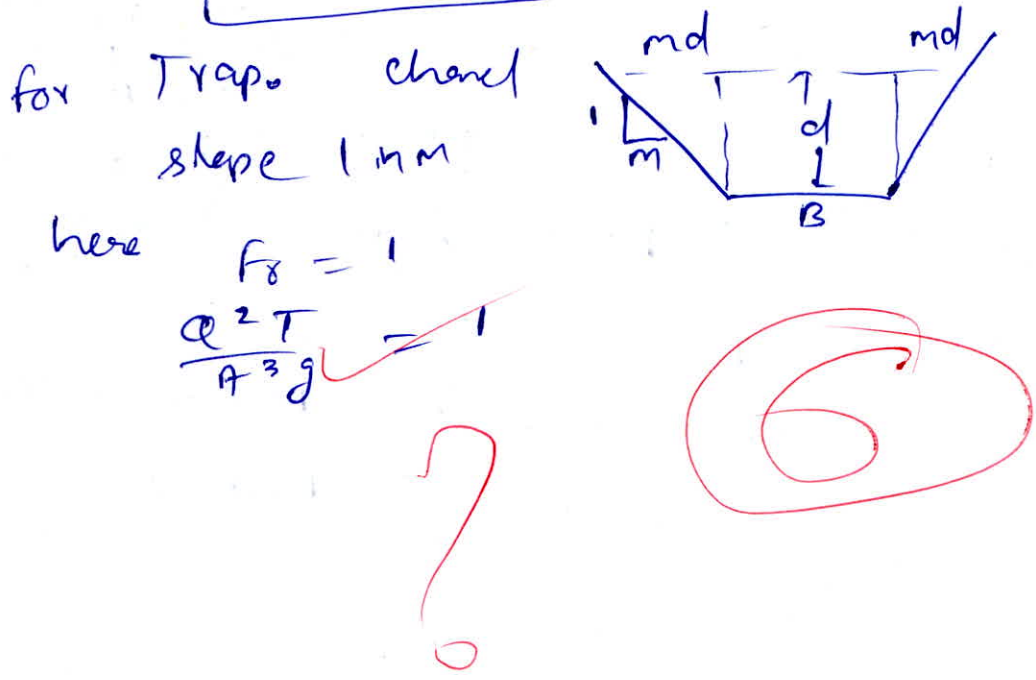 for Trap. chanel
slope 1 in m
md md
1
m
d
B
here Fr = 1
Q² T / A³ g = 1
?
6